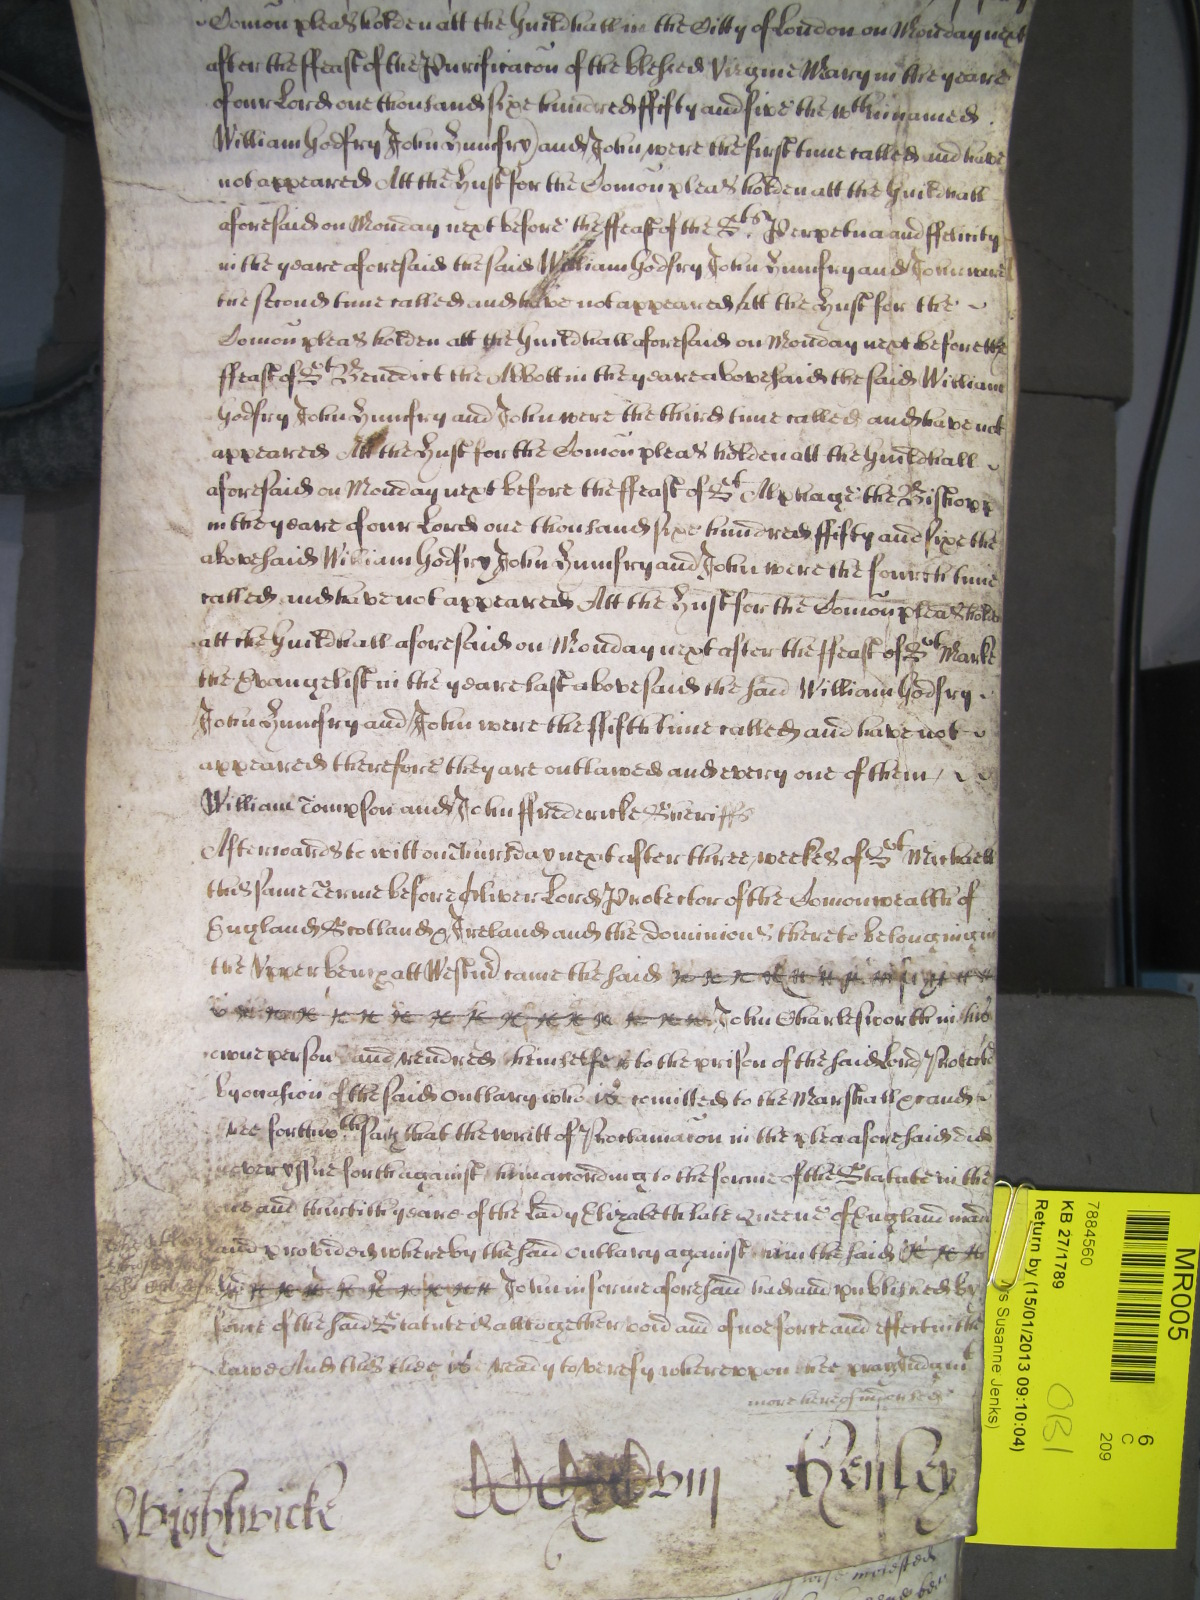 Comon pleas holden att the Guildhall in the Citty of London on Monday next
after the ffeast of the Purificacon of the blessed Virgine Mary in the yeare
of our Lord one thousand sixe hundred ffifty and five the wthinnamed
William Godfry John Humfry and John were the first time called and have
not appeared Att the Hust for the Comon pleas holden att the Guildhall
aforesaid on Monday next before the ffeast of the Sts Perpetua and ffelicity
in the yeare aforesaid the said William Godfry John Humfry and John were
the second time called and have not appeared Att the Hust for the
Comon pleas holden att the Guildhall aforesaid on Monday next before the
ffeast of St Benedict the Abbott in the yeare abovesaid the said William
Godfry John Humfry and John were the third time called and have not
appeared Att the Hust for the Comon pleas holden att the Guildhall
aforesaid on Monday next before the ffeast of St Alphage the Bishopp
in the yeare of our Lord one thousand sixe hundred ffifty and sixe the
abovesaid William Godfry John Humfry and John were the fourth time
called and have not appeared Att the Hust for the Comon pleas holden
att the Guildhall aforesaid on Monday next after the ffeast of St Marke
the Evangelist in the yeare last abovesaid the said William Godfry
John Humfry and John were the ffifth time called and have not
appeared therefore they are outlawed and every one of them
William Tompson and John ffredericke Sheriffs
Afterwards to witt on Thursday next after three weekes of St Michaell
this same Terme before Oliver Lord Protector of the Comonwealth of
England Scotland & Ireland and the dominions thereto belonging in
the Upper bench att Westmr came the said
John Charlesworth in his
owne person and rendred himselfe to the prison of the said Lord Protector
by occasion of the said outlary who is comitted to the Marshall &c and
hee forthwth saith that the writt of Proclamacon in the plea aforesaid did
never yssue forth against him according to the forme of the Statute in the
one and thirtith yeare of the Lady Elizabeth late Queene of England made
and provided whereby the said outlary against him the said
John in forme aforesaid had and published by
force of the said Statute is altogether void and of noe force and effect in the
Lawe And this hee is ready to verefy whereupon hee prays Judgmt
more hereof indorsed
Wightwicke
xviij Henley
MR005
7884560
KB 27/1789
Return by (15/01/2013 09:10:04)
Susanne Jenks)
6
C
209
OB1